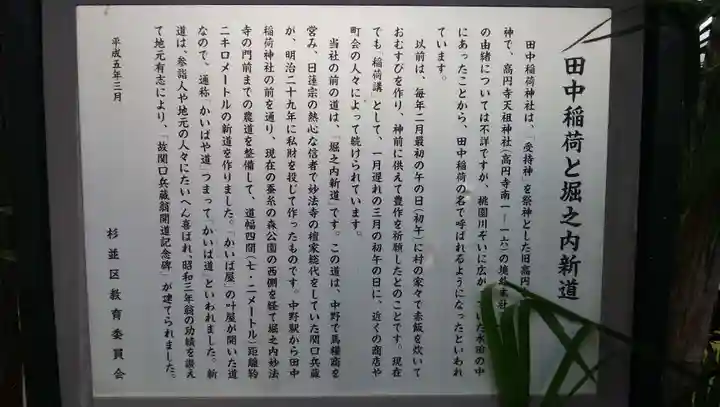 田中稲荷と堀之内新道
田中稲荷神社は、「受持神」を祭神とした旧高円寺
神で、高円寺天祖神社(高円寺南一―一六)の境外末社
の由緒については不詳ですが、桃園川ぞいに広が いた水田の中
にあったことから、田中稲荷の名で呼ばれるようになったといわれ
ています。
以前は、毎年二月最初の午の日(初午)に村の家々で赤飯を炊いて
おむすびを作り、神前に供えて豊作を祈願したとのことです。現在
でも「稲荷講」として、一月遅れの三月の初午の日に、近くの商店や
町会の人々によって続けられています。
当社の前の道は、「堀之内新道」です。この道は、中野で馬糧商を
営み、日蓮宗の熱心な信者で妙法寺の檀家総代をしていた関口兵蔵
が、明治二十九年に私財を投じて作ったものです。中野駅から田中
稲荷神社の前を通り、現在の蚕糸の森公園の西側を経て堀之内妙法
寺の門前までの農道を整備して、道幅四間(七・二メートル)距離約
二キロメートルの新道を作りました。「かいば屋」の叶屋が開いた道
なので、通称「かいばや道」つまって「かいば道」といわれました。新
道は、参詣人や地元の人々にたいへん喜ばれ、昭和三年翁の功績を讃え
て地元有志により、「故関口兵蔵翁開道記念碑」が建てられました。
平成五年三月
杉並区教育委員会